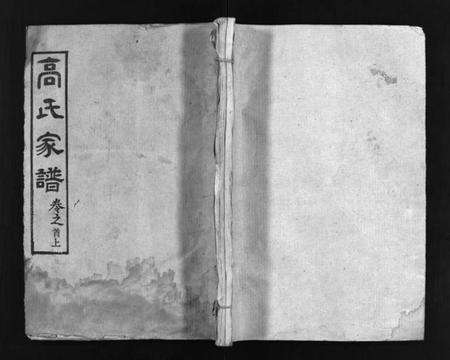 高氏家譜
卷之首上